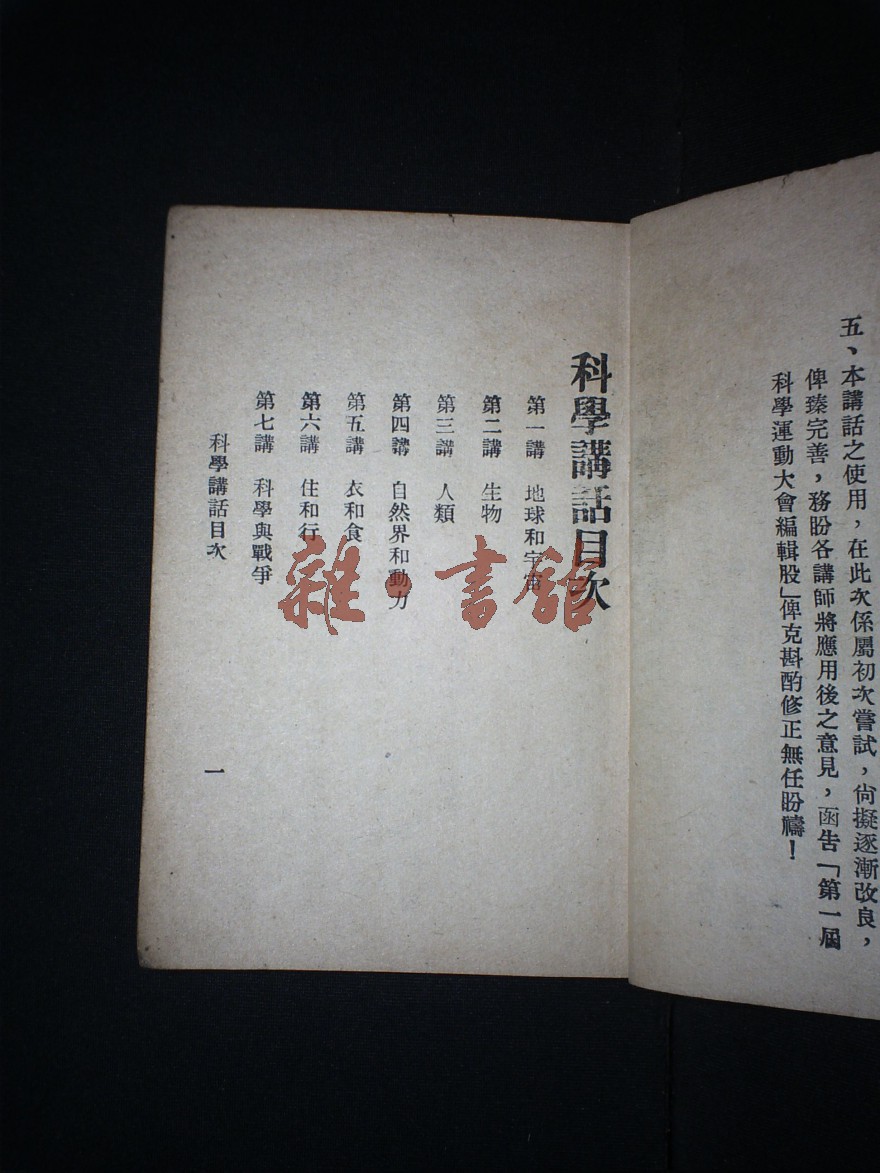 五、本講話之使用，在此次係屬初次嘗試，尙擬逐漸改良，
俾臻完善，務盼各講師將應用後之意見，函告「第一屆
科學運動大會編輯股」俾克斟酌修正無任盼禱！
科學講話目次
第一講　地球和宇宙
第二講　生物
第三講　人類
第四講　自然界和動力
第五講　衣和食
第六講　住和行
第七講　科學與戰爭
科學講話目次
一
雜·書館